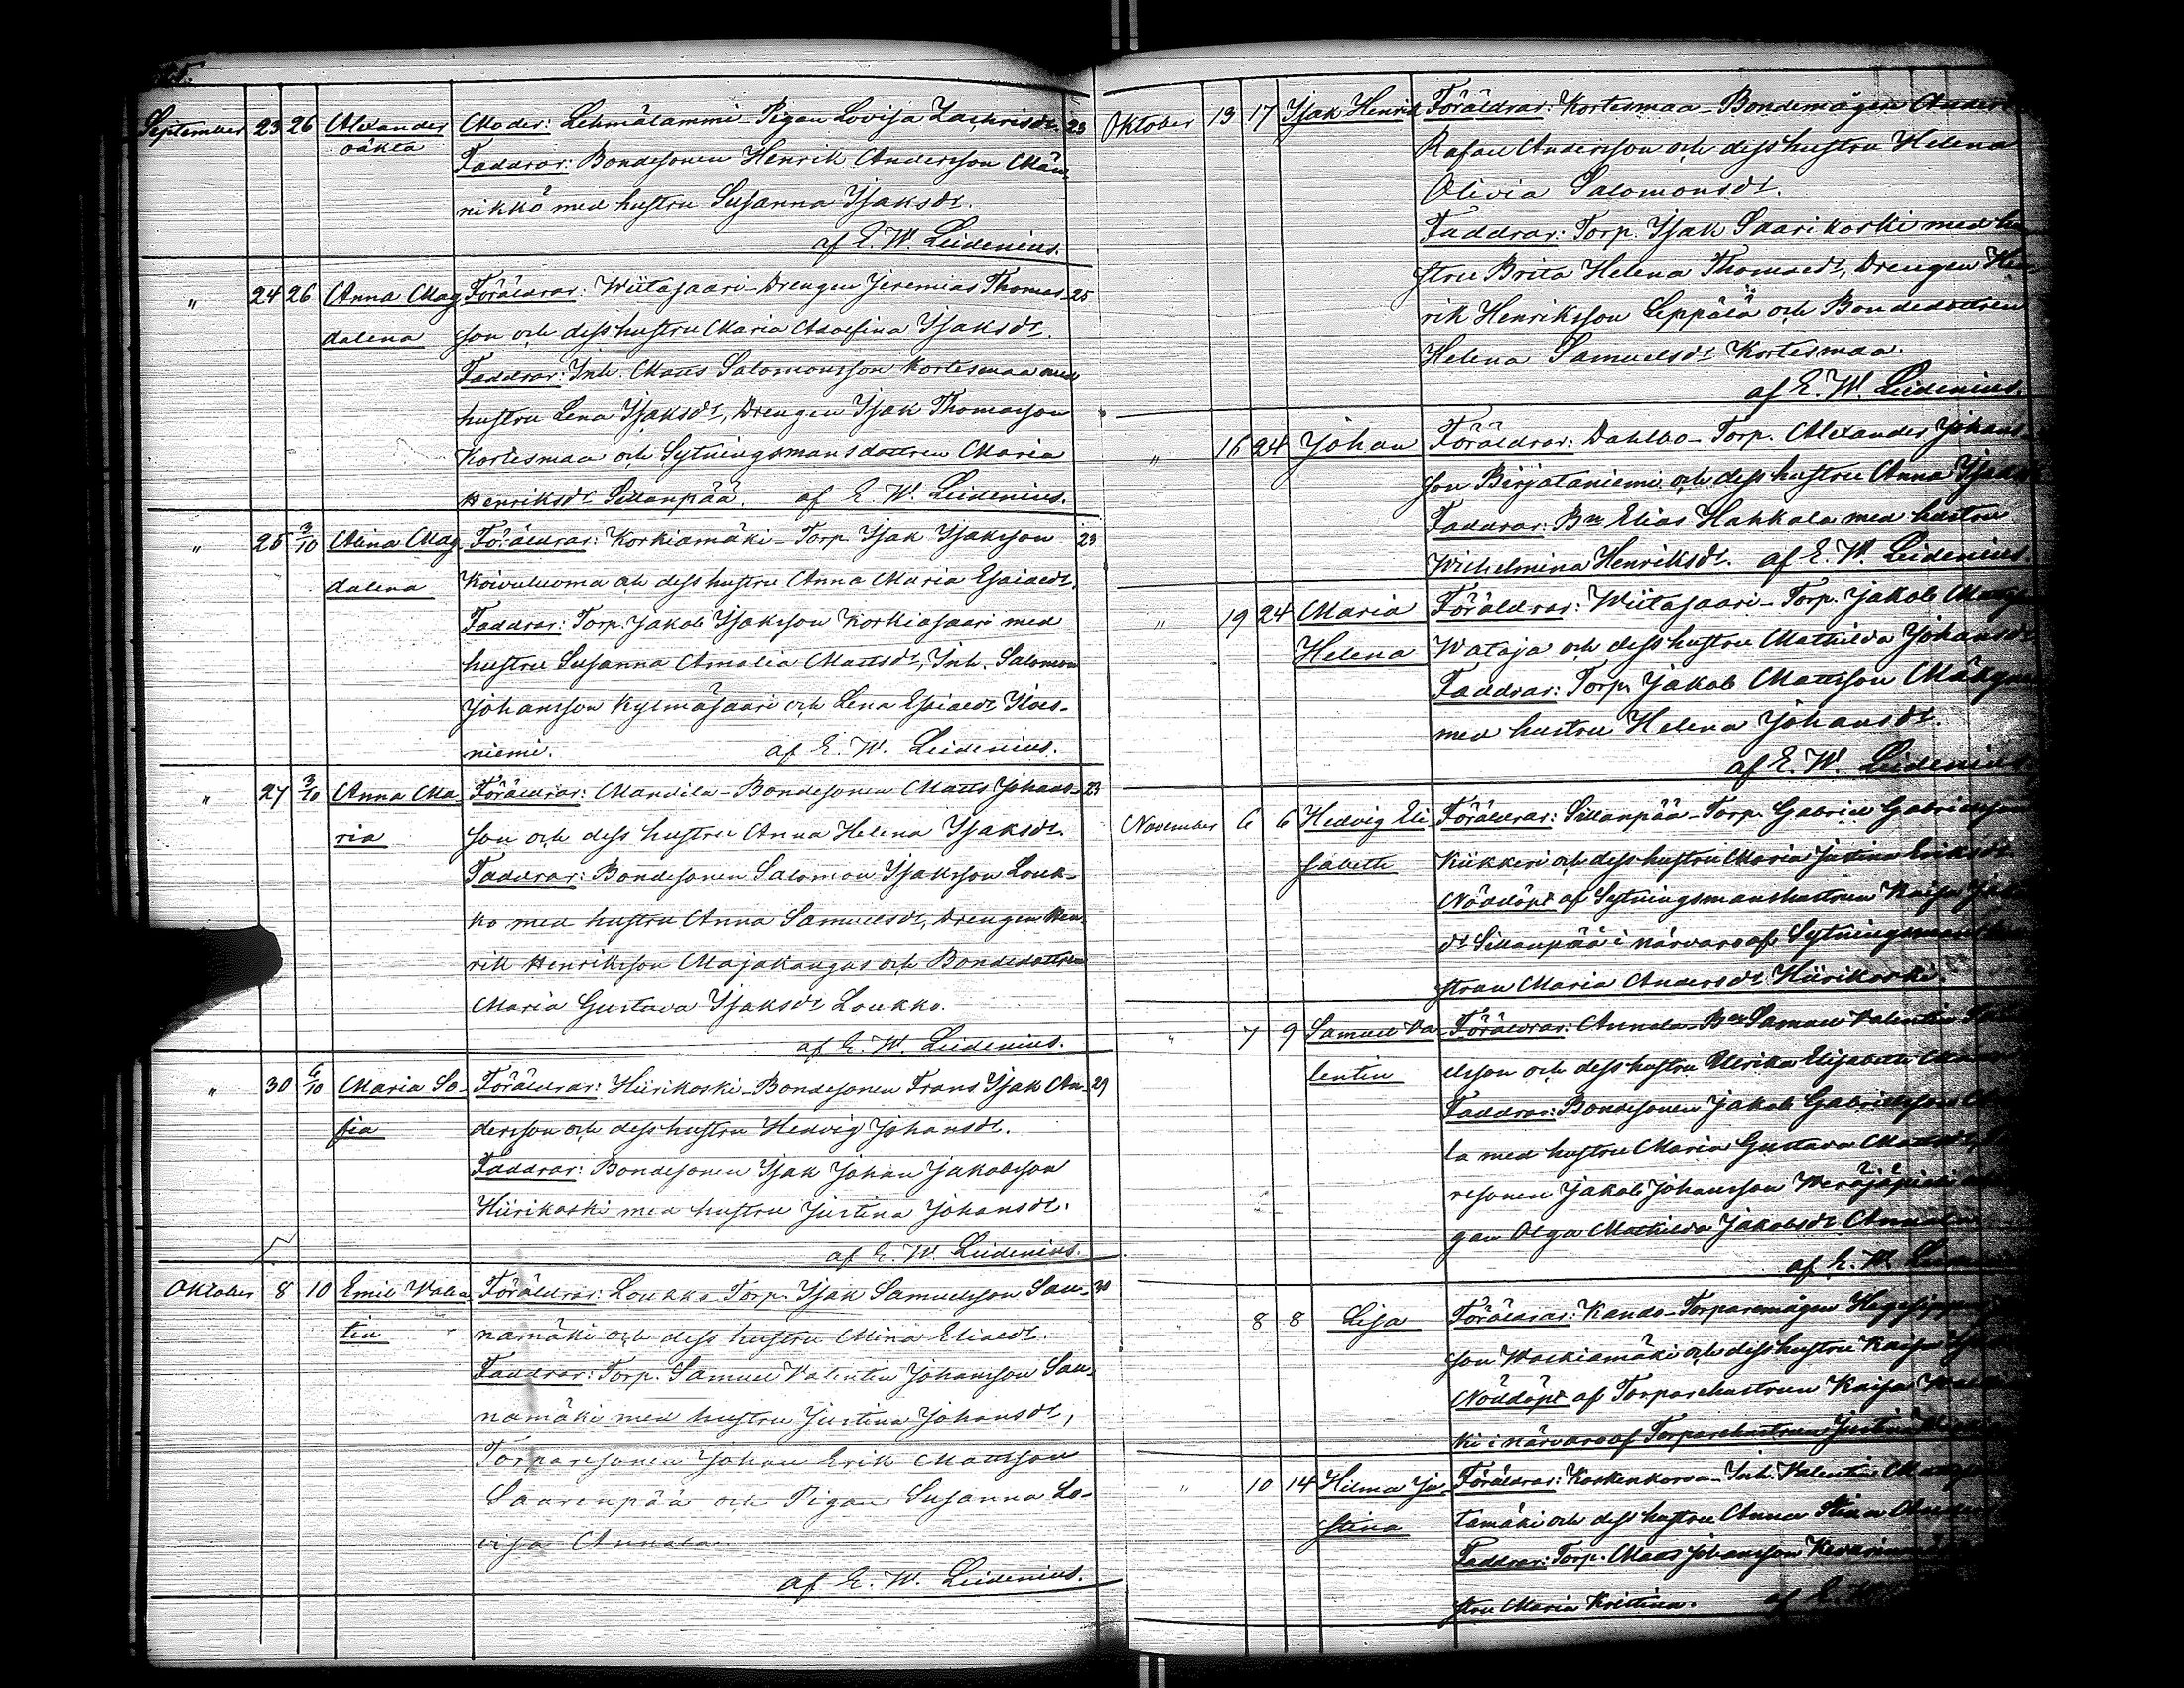 September 23 26 Alexander Moder: Lehmälammi-Pigan Lovisa Zachrisdr. 23
oäkta Faddrar: Bondesonen Henrik Andersson Män-
nikkö med hustru Susanna Isaksdr.
af E. W. Leidenius.
" 24 26 Anna Mag Föräldrar: Wiitasaari-Drengen Jeremias Thomas- 25
dalena son och dess hustru Maria Adolfina Isaksdr.
Faddrar: Inh. Matts Salomonsson Kortesmaa med
hustru Lena Isaksdr, Drengen Isak Thomasson
Kortesmaa och Sytningsmansdottren Maria
Henriksdr Sillanpää. af E. W. Leidenius.
" 25 3/10 Mina Mag Föräldrar: Korkiamäki-Torp. Isak Isaksson 23
dalena Koivuluoma och dess hustru Anna Maria Esaiaedr.
Faddrar: Torp. Jakob Isaksson Korkiasaari med
hustru Susanna Amalia Mattsdr, Inh. Salomon
Johansson Kylmäsaari och Lena Esaiaedr
niemi. af E. W. Leidenius.
" 27 3/10 Anna Ma Föräldrar: Mandila-Bondesonen Matts Johans- 23
ria son och dess hustru Anna Helena Isaksdr.
Faddrar: Bondesonen Salomon Isaksson Louk-
ko med hustru Anna Samuelsdr, Drengen Hen-
rik Henriksson Majakangas och Bondedottren
Maria Gustava Isaksdr Loukko.
af E. W. Leidenius.
" 30 6/10 Maria So- Föräldrar: Hiirikoski-Bondesonen Frans Isak An- 29
fia dersson och dess hustru Hedvig Johansdr.
Faddrar: Bondesonen Isak Johan Jakobsson
Hiirikoski med hustru Justina Johansdr.
af E. W. Leidenius.
Oktober 8 10 Emil Valen Föräldrar: Loukko-Torp. Isak Samuelsson Sau- 30
tin namäki och dess hustru Mina Eliaedr.
Faddrar: Torp. Samuel Valentin Johansson Sau-
namäki med hustru Justina Johansdr,
Torparesonen Johan Erik Mattsson
Saarenpää och Pigan Susanna Lo-
visa Annala.
af E. W. Leidenius.
Oktober 13 17 Isak Henrik Föräldrar: Kortesmaa-Bondemågen Anders
Rafael Andersson och dess hustru Helena
Olivia Salomonsdr.
Faddrar: Torp. Isak Saarikoski med hu
stru Brita Helena Thomaedr, Drengen Hen
rik Henriksson Leppälä och Bondedottren
Helena Samuelsdr Kortesmaa.
af E. W. Leidenius.
" 16 24 Johan Föräldrar: Dahlbo-Torp. Alexander Johans-
son Birjataniemi och dess hustru Anna Isaksdr
Faddrar: Bn Elias Hakkola med hustru
Wilhelmina Henriksdr. af E. W. Leidenius.
" 19 24 Maria Föräldrar: Wiitasaari-Torp. Jakob
Helena Wataja och dess hustru Mathilda Johansdr.
Faddrar: Torp. Jakob Mattsson
med hustru Helena Johansdr.
af E. W. Leidenius.
November 6 6 Hedvig Eli Föräldrar: Sillanpää-Torp. Gabriel Gabrielsson
sabeth Kiikkeri och dess hustru Maria Justina Eriksdr
Nöddöpt af Sytningsmanshustrun Kaisa
dr Sillanpää i närvaro af Sytningsmans
strun Maria Andersdr Hiirikoski.
" 7 9 Samuel Va- Föräldrar: Annala-Bn Samuel Valentin
lentin elsson och dess hustru Ulrika Elisabeth
Faddrar: Bondesonen Jakob Gabrielsson
la med hustru Maria Gustava
resonen Jakob Johansson
gan Olga Mathilda Jakobsdr
af E. W.
8 8 Lisa Föräldrar: Kando-Torparemågen
son Walkiamäki och dess hustru Kaisa
Nöddöpt af Torparehustrun Kaisa
ki i närvaro af Torparehustrun Justina
" 10 14 Hilma Ju- Föräldrar: Koskenkorva-Inh. Valentin
stina tamäki och dess hustru Anna Stina
Faddrar: Torp. Matts Johansson
stru Maria Kristina. af E.